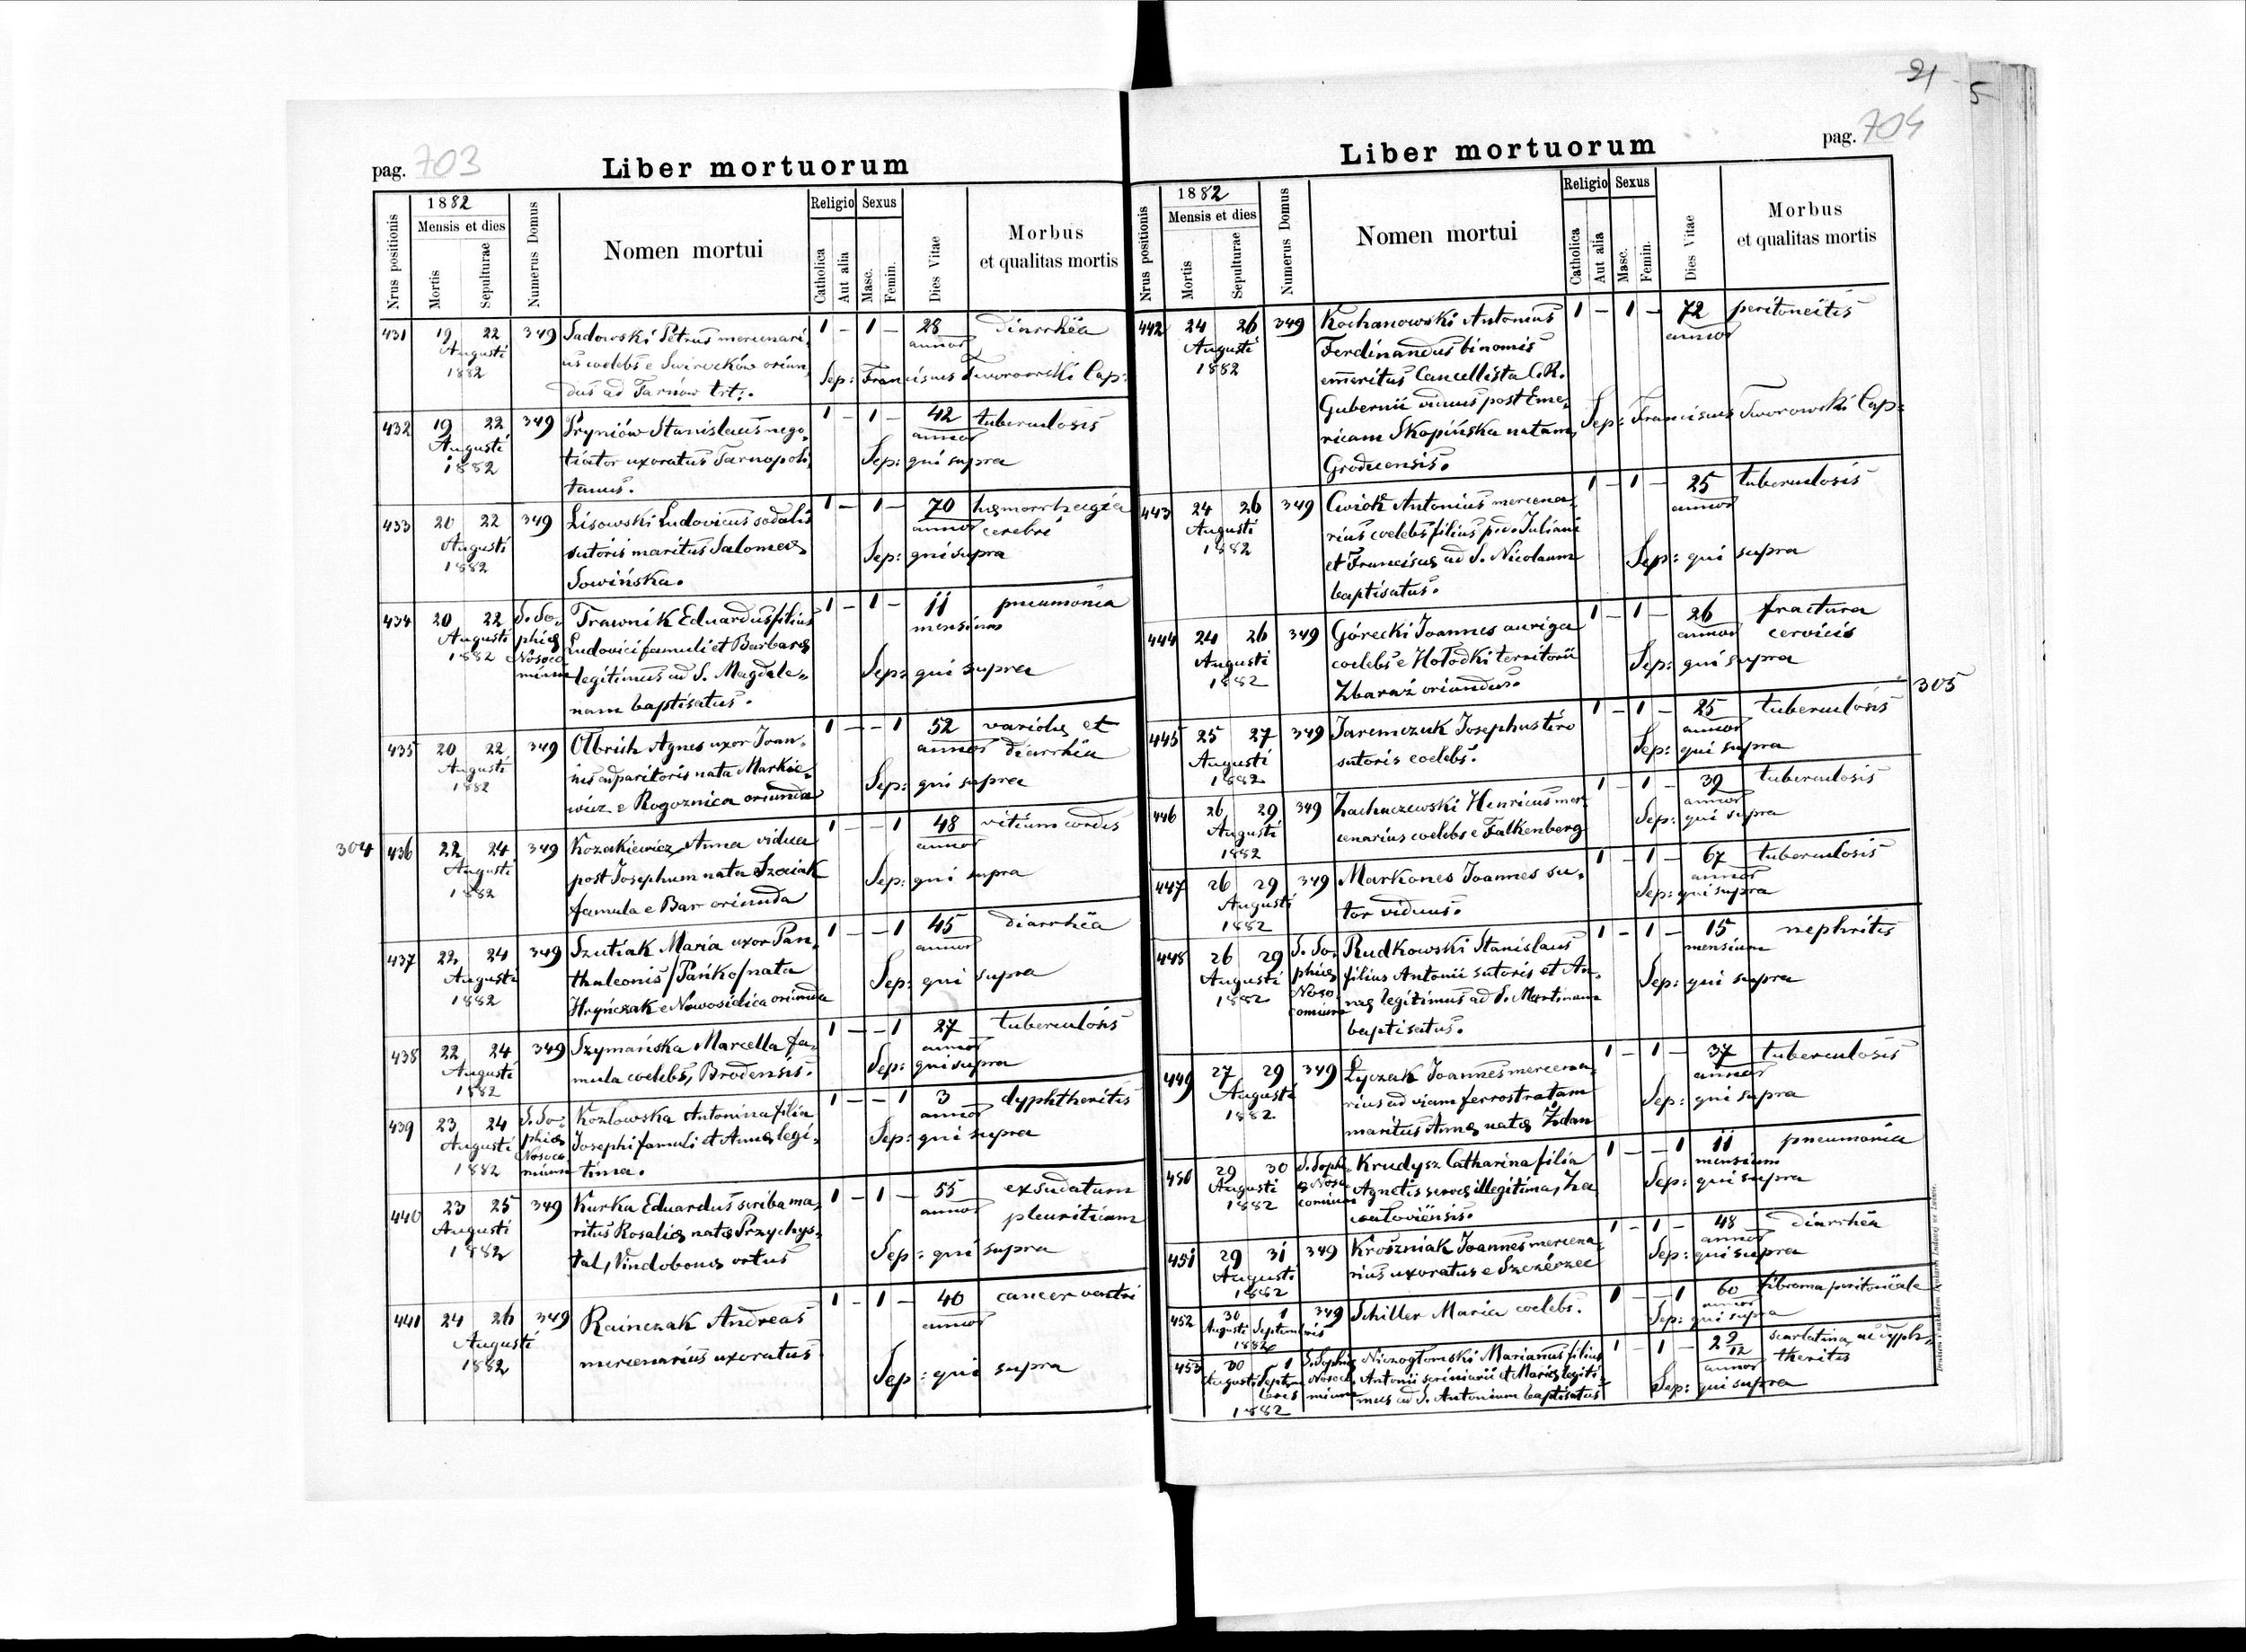 21
5
pag. 703
Liber mortuorum
Nrus positionis
1882
Mensis et dies
Mortis
Sepulturae
Numerus Domus
Nomen mortui
Religio
Catholica
Aut alia
Sexus
Masc.
Femin.
Dies Vitae
Morbus
et qualitas mortis
431 19 22 349 Sadowski Petrus mercenari, 1 – 1 – 28 diarrhëa
Augusti us coelebs e Świrocków oriun, annor
1882 Sep: Franciscus Tworowski Cap:
dus ad Tarnów trt:.
432 19 22 349 Pryniów Stanislaus nego, 1 – 1 – 42 tuberculosis
Augusti tiator uxoratus Tarnopoli, annor
1882 Sep: qui supra
tanus.
433 20 22 349 Lisowski Ludovicus sodalis 1 – 1 – 70 hæmorrhagia
Augusti sutoris maritus Salomeæ annor cerebri
1882 Sowińska. Sep: qui supra
434 20 22 S. So, Trawnik Eduardus filius 1 – 1 – 11 pneumonia
Augusti phiæ Ludovici famuli et Barbaræ mensium
1882 Nosoco legitimus ad S. Magdale, Sep: qui supra
mium nam baptisatus.
435 20 22 349 Olbrich Agnes uxor Joan, 1 – – 1 52 variolæ et
Augusti nis adparitoris nata Markie, annor diarrhëa
1882 wicz e Rogoznica oriunda Sep: qui supra
304 436 22 24 349 Kozakiewicz Anna vidua 1 – – 1 48 vitium cordis
Augusti post Josephum nata Szaiak annor
1882 famula e Bar oriunda Sep: qui supra
437 22 24 349 Szutiak Maria uxor Pan, 1 – – 1 45 diarrhëa
Augusti thaleonis /Pańko/ nata annor
1882 Hryńczak e Nowosielica oriunda Sep: qui supra
438 22 24 349 Szymańska Marcella fa, 1 – – 1 27 tuberculosis
Augusti mula coelebs, Brodensis. annor
1882 Sep: qui supra
439 23 24 S. So, Kozłowska Antonina filia 1 – – 1 3 dyphtheritis
Augusti phiæ Josephi famuli et Annæ legi, annor
1882 Nosoco mium tima. Sep: qui supra
440 23 25 349 Kurka Eduardus scriba ma, 1 – 1 – 55 exsudatum
Augusti ritus Rosaliæ natæ Przychys, annor pleuriticum
1882 tal, Vindobonæ ortus Sep: qui supra
441 24 26 349 Rainczak Andreas 1 – 1 – 40 cancer ventri
Augusti mercenarius uxoratus annor
1882 Sep: qui supra
pag. 704
Liber mortuorum
Nrus positionis
1882
Mensis et dies
Mortis
Sepulturae
Numerus Domus
Nomen mortui
Religio
Catholica
Aut alia
Sexus
Masc.
Femin.
Dies Vitae
Morbus
et qualitas mortis
442 24 26 349 Kochanowski Antonius 1 – 1 – 72 peritoneitis
Augusti Ferdinandus binomis annor
1882 emeritus Cancellista C.R.
Gubernii viduus post Eme,
ricam Skopińska natam, Sep: Franciscus Tworowski Cap:
Grodecensis.
443 24 26 349 Cwiok Antonius mercena, 1 – 1 – 25 tuberculosis
Augusti rius coelebs filius p.d. Juliani annor
1882 et Franciscæ ad S. Nicolaum Sep: qui supra
baptisatus.
444 24 26 349 Górecki Joannes auriga 1 – 1 – 26 fractura
Augusti coelebs e Hołodki territorii annor cervicis
1882 Zbaraż oriundus. Sep: qui supra
305
445 25 27 349 Jaremczuk Josephus tiro 1 – 1 – 25 tuberculosis
Augusti sutoris coelebs. annor
1882 Sep: qui supra
446 26 29 349 Zachaczewski Henricus mer, 1 – 1 – 39 tuberculosis
Augusti cenarius coelebs e Falkenberg annor
1882 Sep: qui supra
447 26 29 349 Markones Joannes su, 1 – 1 – 67 tuberculosis
Augusti tor viduus. annor
1882 Sep: qui supra
448 26 29 S. So, Rudkowski Stanislaus 1 – 1 – 15 nephritis
Augusti phiæ filius Antonii sutoris et An, mensium
1882 Noso næ legitimus ad S. Martinum Sep: qui supra
comium baptisatus.
449 27 29 349 Łyczak Joannes mercena, 1 – 1 – 37 tuberculosis
Augusti rius ad viam ferrostratam annor
1882 maritus Annæ natæ Żdan Sep: qui supra
450 29 30 S. Soph, Krudysz Catharina filia 1 – – 1 11 pneumonia
Augusti æ Noso Agnetis servæ illegitima, Za mensium
1882 comium Sep: qui supra
451 29 31 349 Kroszniak Joannes mercena, 1 – 1 – 48 diarrhëa
Augusti rius uxoratus e Szczérzec annor
1882 Sep: qui supra
452 30 1 349 Schiller Maria coelebs. 1 – – 1 60 fibroma peritonëale
Augusti Septembris annor
1882 Sep: qui supra
453 30 1 S. Sophiæ Niezogłomski Marianus filius 1 – 1 – 2 9/12 scarlatina ac dyph,
Augusti Septem Nosoco Antonii scriniarii et Mariæ legiti, annor theritis
bris mium mus ad S. Antonium baptisatus Sep: qui supra
1882